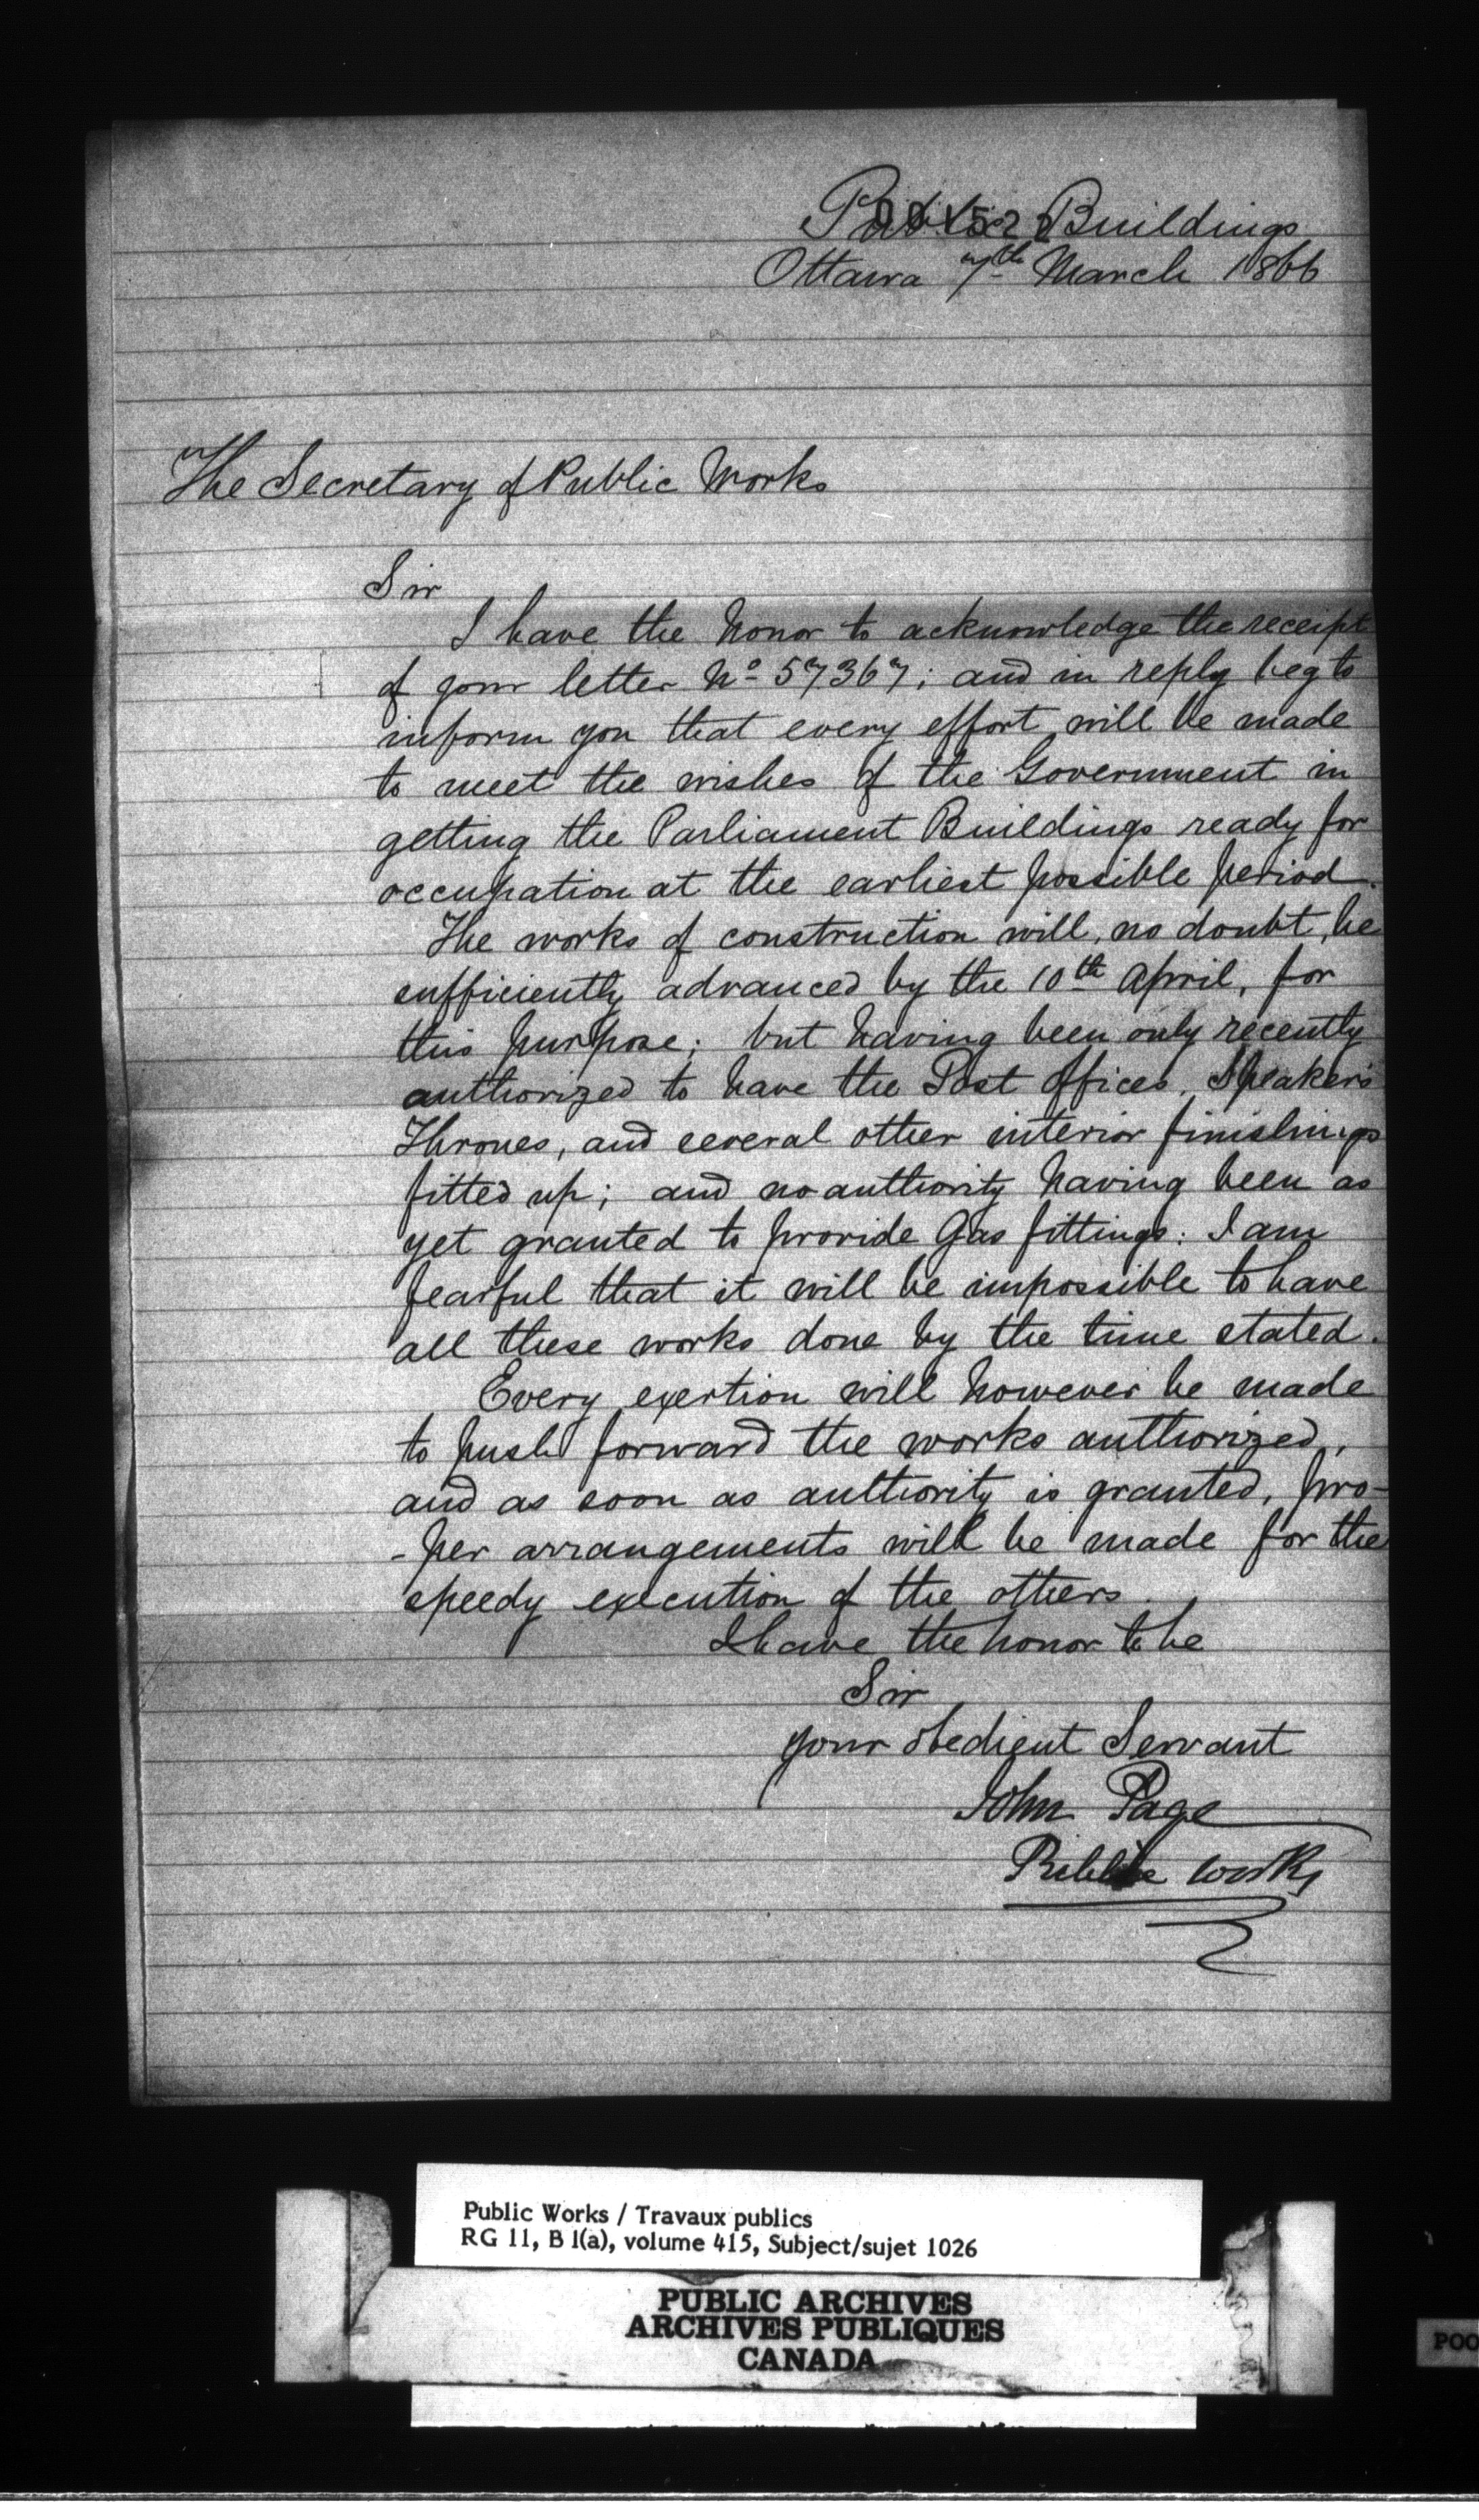 Public Buildings
001522
Ottawa 7th March 1866
The Secretary of Public Works
Sir
I have the honor to acknowledge the receipt
of your letter No 57367; and in reply beg to
inform you that every effort will be made
to meet the wishes of the Government in
getting the Parliament Buildings ready for
occupation at the earliest possible period.
The works of construction will, no doubt, be
sufficiently advanced by the 10th April, for
this purpose; but having been only recently
authorized to have the Post Offices, Speaker's
Thrones, and several other interior finishings
fitted up; and no authority having been as
yet granted to provide Gas fittings: I am
fearful that it will be impossible to have
all these works done by the time stated.
Every exertion will however be made
to push forward the works authorized,
and as soon as authority is granted, pro-
-per arrangements will be made for the
speedy execution of the others.
I have the honor to be
Sir
your obedient Servant
John Page
Public Works
Public Works / Travaux publics
RG 11, B 1(a), volume 415, Subject/sujet 1026
PUBLIC ARCHIVES
ARCHIVES PUBLIQUES
CANADA
POO